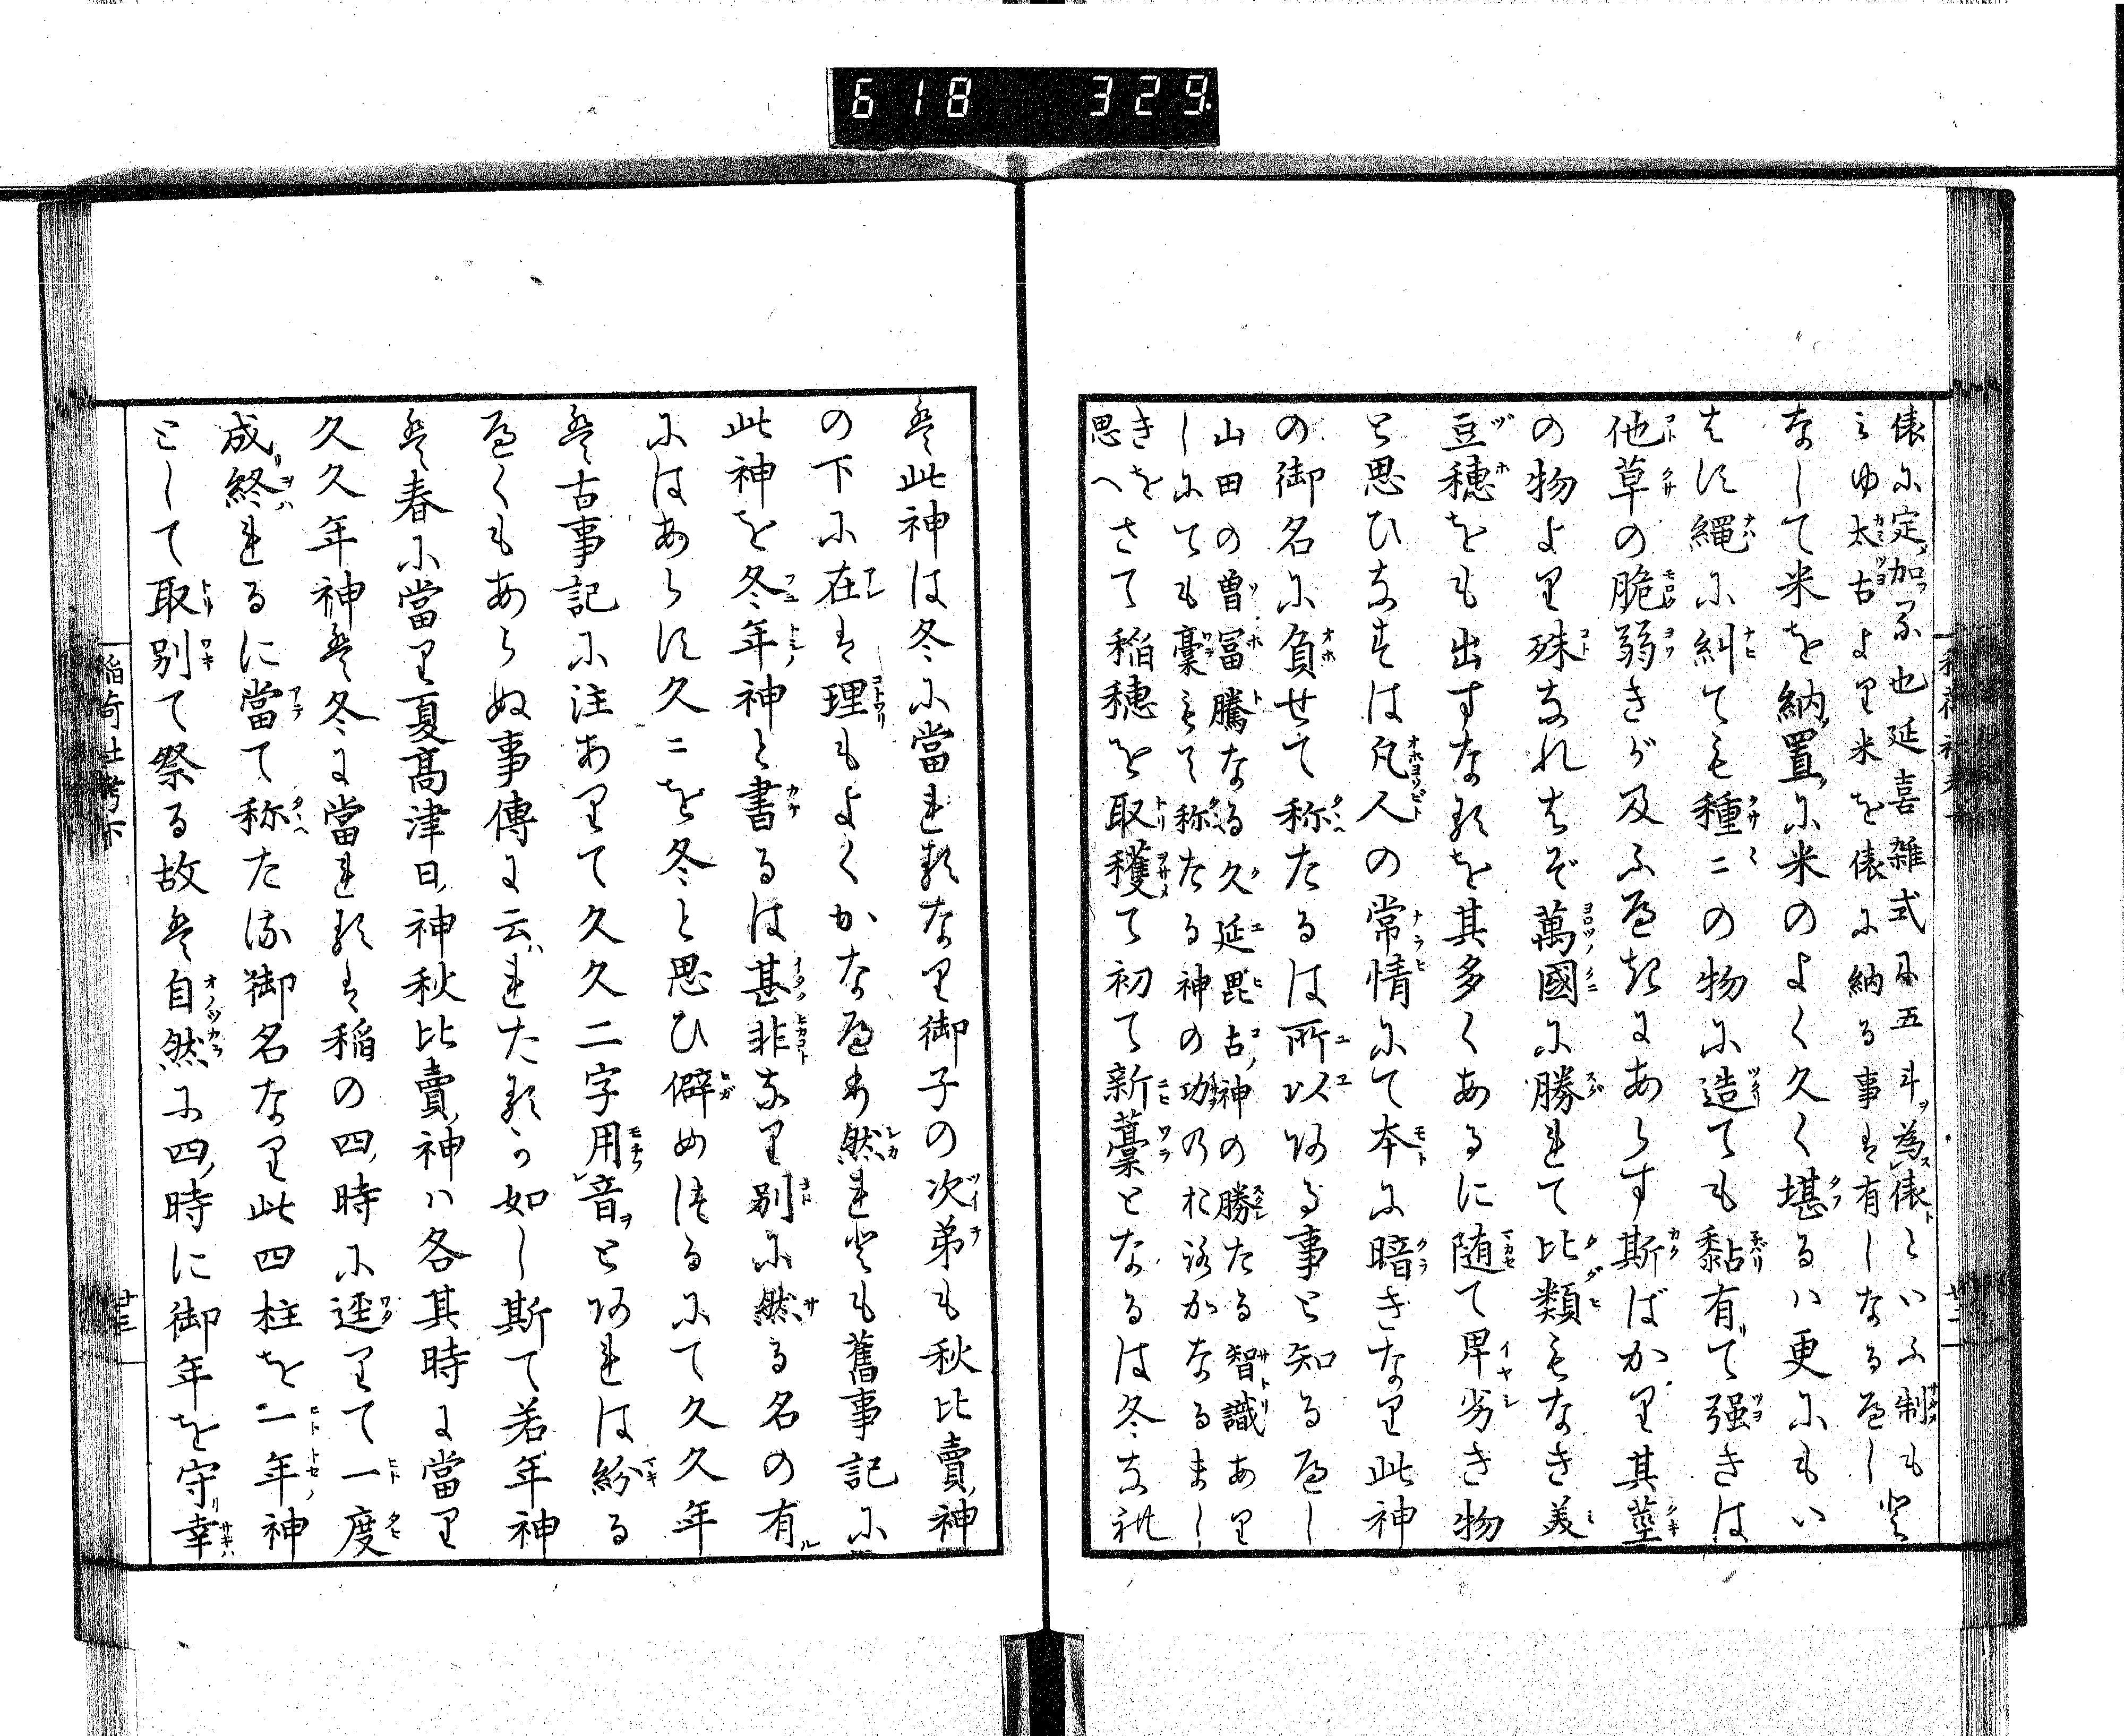 618 329
俵に定加ふる也延喜雑式に五斗為俵といふ制も
みゆ太古より米を俵に納る事は有しなるべし
なして米を納置に米のよく久く堪るハ更にもい
はず縄に糾ても種〻の物に造ても黏有て强きは
他草の脆弱きが及ふべきにあらす斯ばかり其莖
の物より殊なれはぞ萬國に勝れて比類もなき美
豆穂をも出すなるを其多くあるに随て卑劣き物
と思ひなすは凡人の常情にて本に暗きなり此神
の御名に負せて称たるは所以ある事と知るべし
山田の曽冨騰なる久延毘古神の勝たる智識あり
しにても稾もて称たる神の功のおろかなるまし
きを
思へさて稲穂を取穫て初て新藁となるは冬なれ
是此神は冬に當れるなり御子の次弟も秋比賣神
の下に在は理もよくかなへり然れども舊事記に
此神を冬年神と書るは甚非なり別に然る名の有
にはあらず久〻を冬と思ひ僻めつるにて久久年
是古事記に注ありて久久二字用音とあれは紛る
べくもあらぬ事傳に云れたるか如し斯て若年神
是春に當り夏髙津日神秋比賣神ハ各其時に當り
久久年神是冬に當れるは稲の四時に遝りて一度
成終れるに當て称たる御名なり此四柱を一年神
として取別て祭る故是自然に四時に御年を守幸
稲荷社考下
廿三